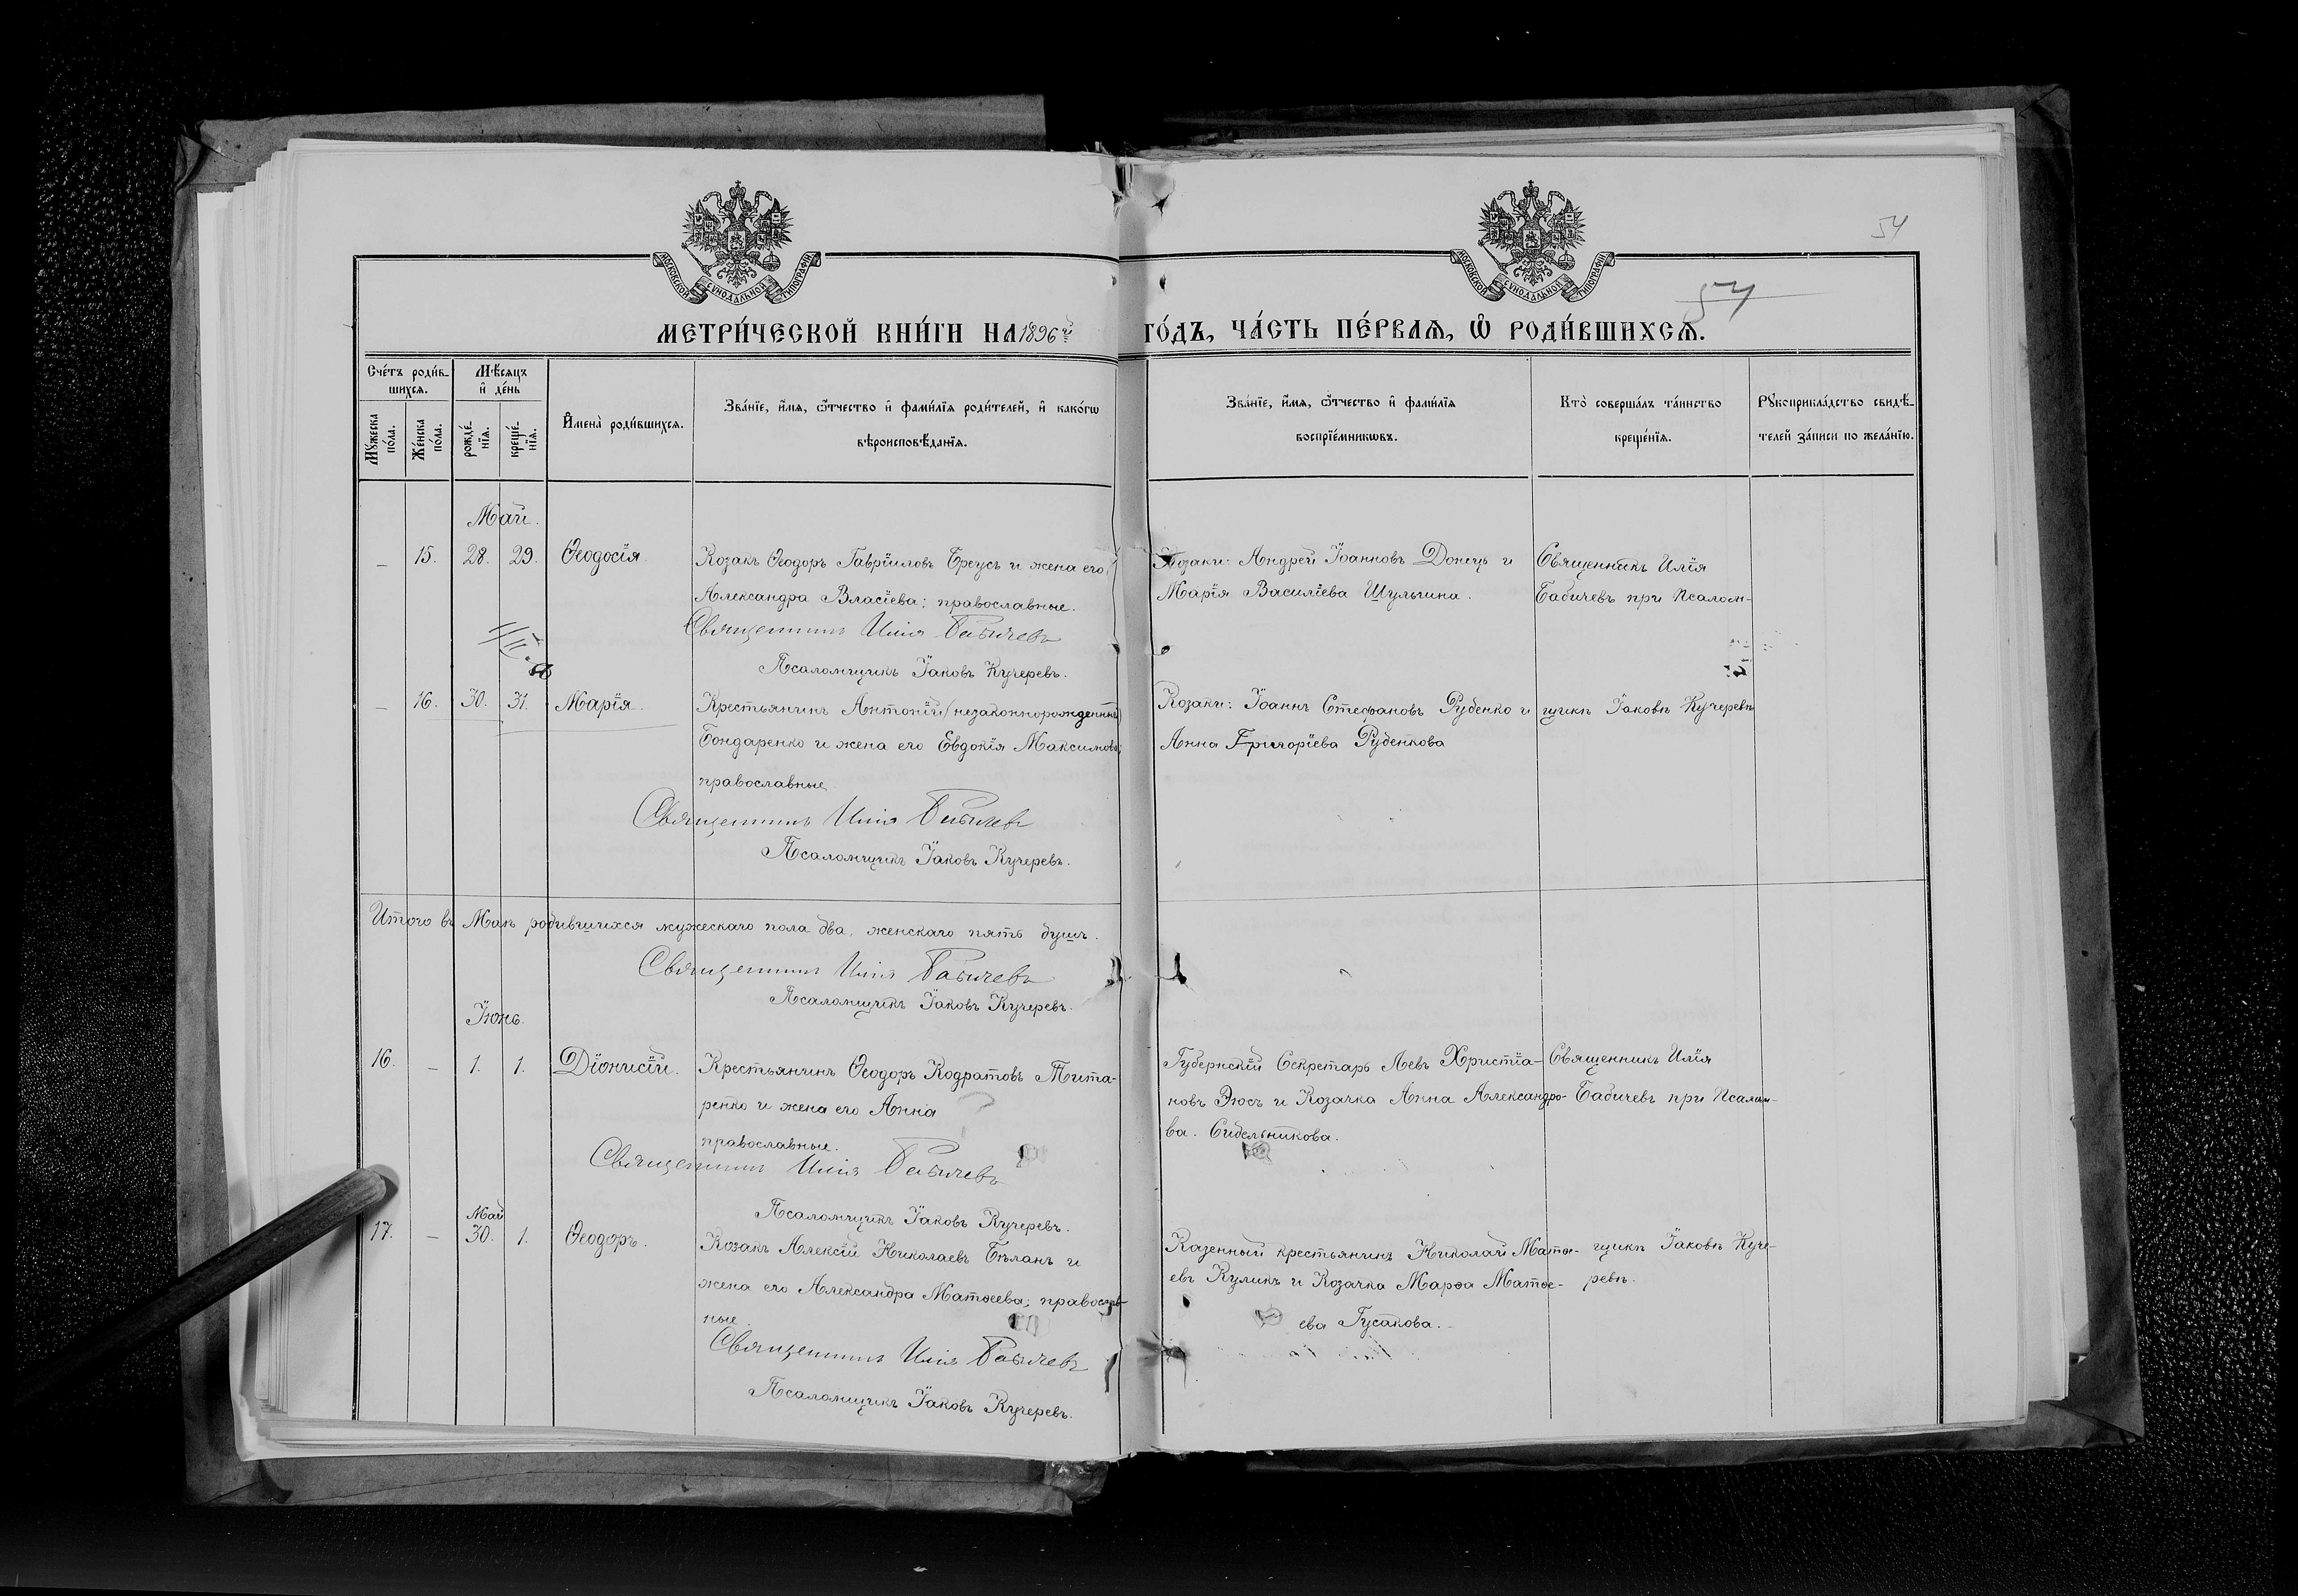 54
54
МОСКОВСКОЙ СѴНОДАЛЬНОЙ ТИПОГРАФІИ
МОСКОВСКОЙ СѴНОДАЛЬНОЙ ТИПОГРАФІИ
МЕТРИ́ЧЕСКОЙ КНИ́ГИ НА 1896й ГО́ДЪ, ЧА́СТЬ ПЕ́РВАѦ, Ѡ҆ РОДИ́ВШИХСѦ.
Сче́тъ роди́в-
шихсѧ.
Мѣ́сѧцъ
и҆ де́нь
Мꙋ́жеска
по́ла.
Же́нска
по́ла.
рожде́-
нїѧ.
креще́-
нїѧ.
И҆мена̀ роди́вшихсѧ.
Зва́нїе, и҆́мѧ, ѻ҆́тчество и҆ фами́лїѧ роди́телей, и҆ како́гѡ
вѣроисповѣ́данїѧ.
Зва́нїе, и҆́мѧ, ѻ҆́тчество и҆ фами́лїѧ
воспрїе́мникѡвъ.
Кто̀ соверша́лъ та́инство
креще́нїѧ.
Рꙋкоприкла́дство свидѣ́-
телей за́писи по жела́нїю.
Май.
— 15. 28. 29. Ѳеодосія. Козакъ Ѳеодоръ Гавріиловъ Бреусъ и жена его
Александра Власіева; православные.
Священникъ Илія Бабичевъ
Псаломщикъ Іаковъ Кучеревъ.
Козаки: Андрей Іоанновъ Донецъ и
Марія Василіева Шульгина.
Священникъ Илія
Бабичевъ при Псалом-
— 16. 30. 31. Марія. Крестьянинъ Антоній (незаконнорожденный)
Бондаренко и жена его Евдокія Максимова;
православные
Священникъ Илія Бабичевъ
Псаломщикъ Іаковъ Кучеревъ.
Козаки: Іоаннъ Стефановъ Рубенко и
Анна Григоріева Рубенкова
щикѣ Іаковѣ Кучеревѣ
Итого въ Маѣ родившихся мужескаго пола два, женскаго пять душъ.
Священникъ Илія Бабичевъ
Псаломщикъ Іаковъ Кучеревъ.
Іюнь.
16. — 1. 1. Діонисій. Крестьянинъ Ѳеодоръ Кодратовъ Тита-
ренко и жена его Анна
православные.
Священникъ Илія Бабичевъ
Псаломщикъ Іаковъ Кучеревъ.
Губернскій Секретарь Левъ Христіа-
новъ Эюсъ и Козачка Анна Александро-
ва. Сидельникова.
Священникъ Илія
Бабичевъ при Псалом-
Май
17. — 30. 1. Ѳеодоръ. Козакъ Алексій Николаевъ Бѣланъ и
жена его Александра Матѳеева; православ-
ные.
Священникъ Илія Бабичевъ
Псаломщикъ Іаковъ Кучеревъ.
Казенный крестьянинъ Николай Матѳе-
евъ Куликъ и Козачка Марѳа Матѳе-
ева Гусакова.
щикѣ Іаковѣ Куче-
ревѣ.